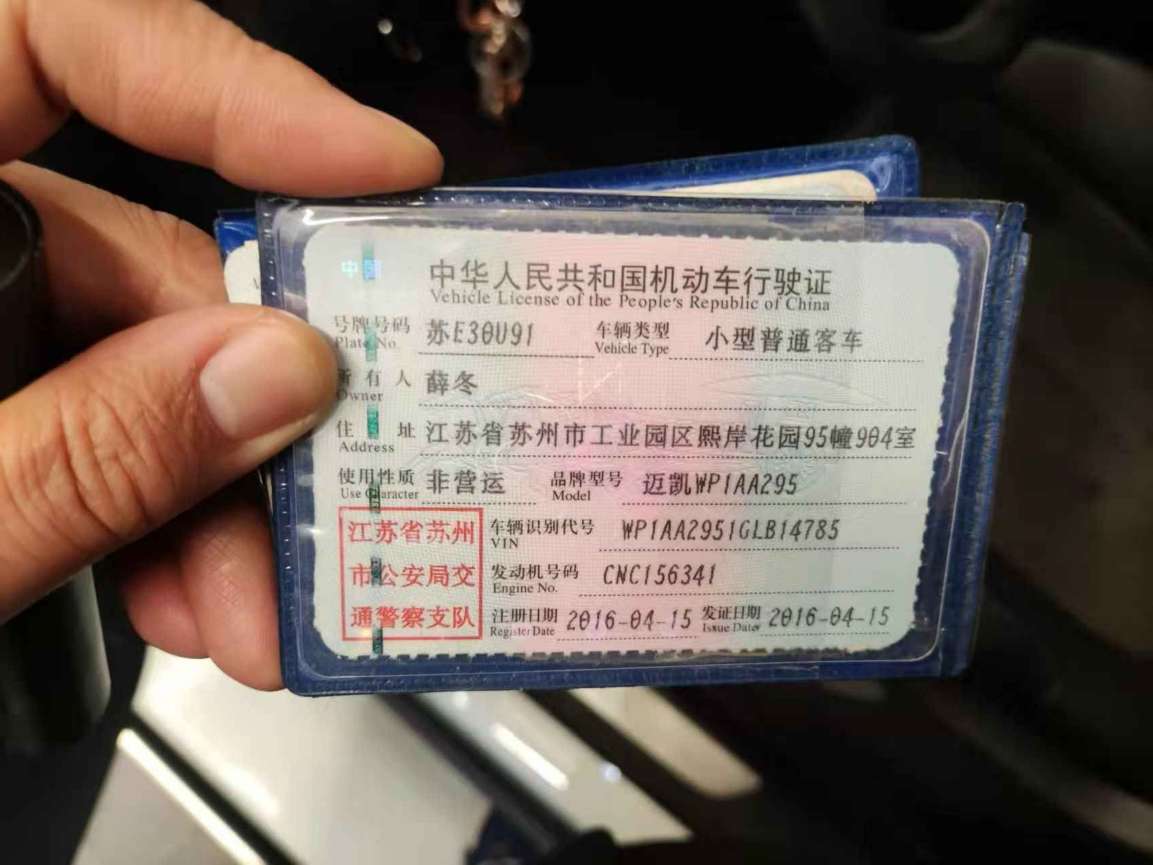 中国
中华人民共和国机动车行驶证
Vehicle License of the People's Republic of China
号牌号码 苏E30U91 车辆类型 小型普通客车
Plate No. Vehicle Type
所有人 薛冬
Owner
住址 江苏省苏州市工业园区熙岸花园95幢904室
Address
使用性质 非营运 品牌型号 迈凯WP1AA295
Use Character Model
江苏省苏州
市公安局交
通警察支队
车辆识别代号 WP1AA2951GLB14785
VIN
发动机号码 CNC156341
Engine No.
注册日期 2016-04-15 发证日期 2016-04-15
Register Date Issue Date